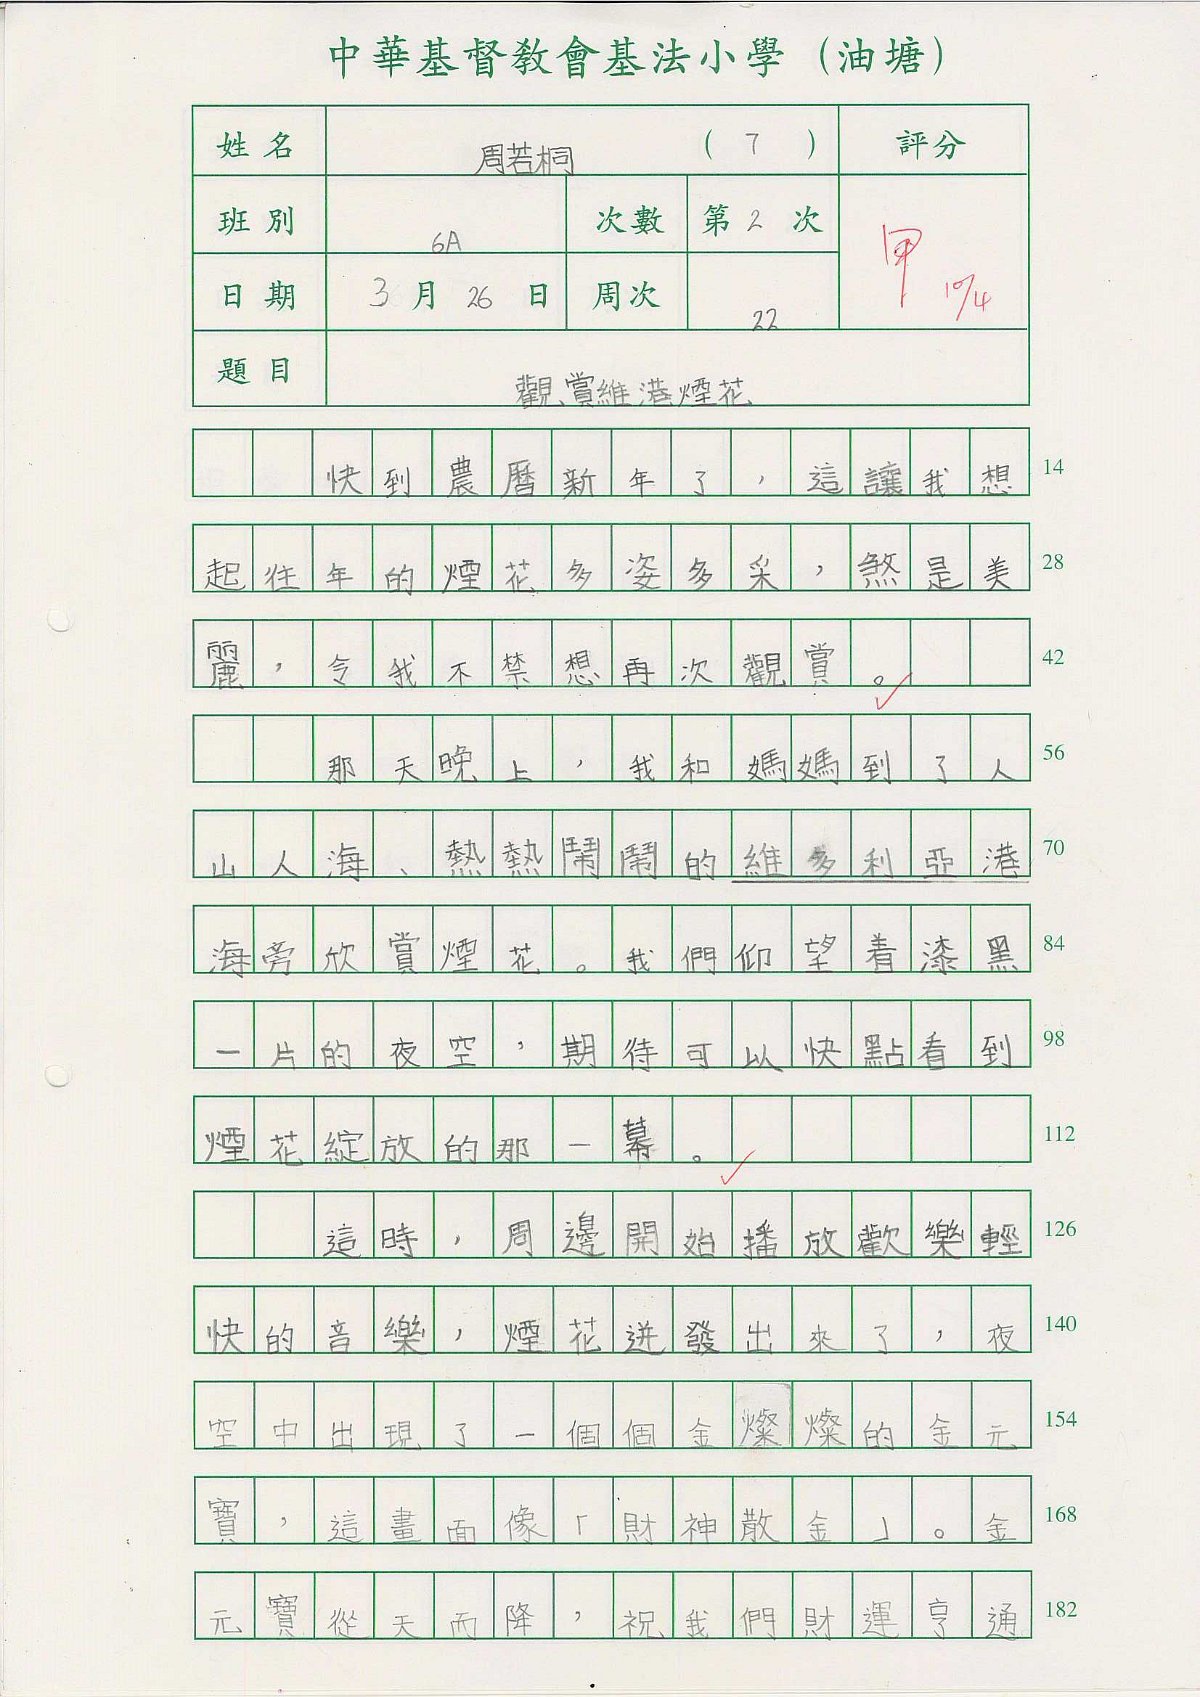 中華基督教會基法小學（油塘）
姓名 周若桐 （7） 評分
班別 6A 次數 第2次 甲 10/4
日期 3月26日 周次 22
題目 觀賞維港煙花
快到農曆新年了，這讓我想 14
起往年的煙花多姿多采，煞是美 28
麗，令我不禁想再次觀賞。 42
那天晚上，我和媽媽到了人 56
山人海、熱熱鬧鬧的維多利亞港 70
海旁欣賞煙花。我們仰望着漆黑 84
一片的夜空，期待可以快點看到 98
煙花綻放的那一幕。 112
這時，周邊開始播放歡樂輕 126
快的音樂，煙花迸發出來了，夜 140
空中出現了一個個金燦燦的金元 154
寶，這畫面像「財神散金」。金 168
元寶從天而降，祝我們財運亨通 182